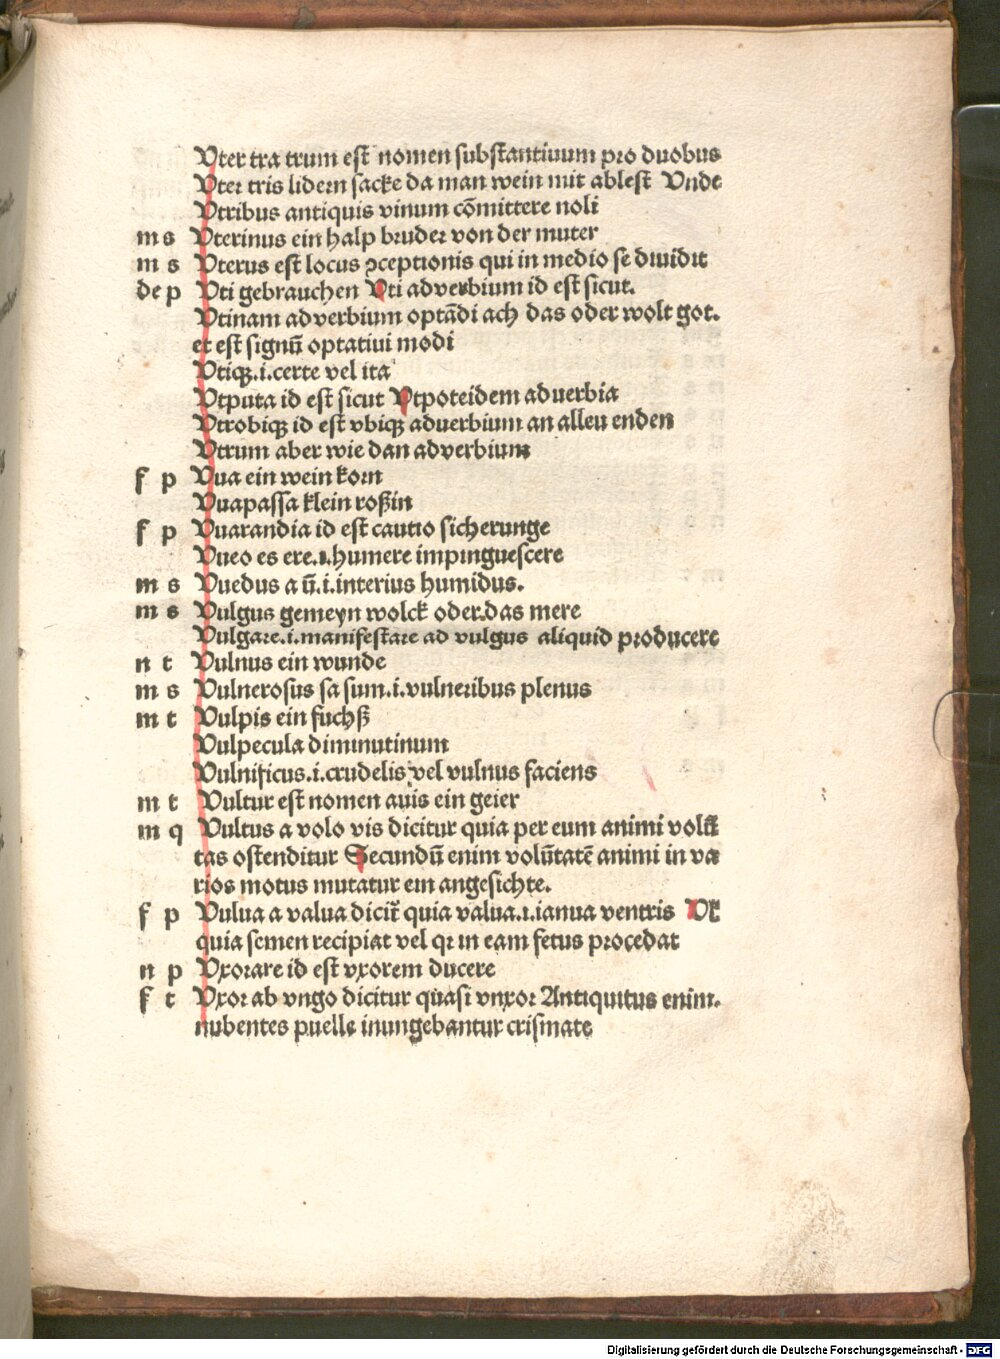 Vter tra trum est nomen substantiuum pro duobus
Vter tris lidern sacke da man wein mit ablest Vnde
Vtribus antiquis vinum cōmittere noli
m s Vterinus ein halp bruder von der muter
m s Vterus est locus ↄceptionis qui in medio se diuidit
de p Vti gebrauchen Vti adverbium id est sicut.
Vtinam adverbium optādi ach das oder wolt got.
et est signū optatiui modi
Vtiqꝫ.i.certe vel ita
Vtputa id est sicut Vtpoteidem aduerbia
Vtrobiqꝫ id est vbiqꝫ aduerbium an alleu enden
Vtrum aber wie dan adverbium
f p Vua ein wein korn
Vuapassa klein roßin
f p Vuarandia id est cautio sicherunge
Vueo es ere.i.humere impinguescere
m s Vuedus a ū.i.interius humidus.
m s Vulgus gemeyn wolck oder.das mere
Vulgare.i.manifestare ad vulgus aliquid producere
n t Vulnus ein wunde
m s Vulnerosus sa sum.i.vulneribus plenus
m t Vulpis ein fuchß
Vulpecula diminutinum
Vulnificus.i.crudelis vel vulnus faciens
m t Vultur est nomen auis ein geier
m q Vultus a volo vis dicitur quia per eum animi volū
tas ostenditur Secundū enim volūtatē animi in va
rios motus mutatur ein angesichte.
f p Vulua a valua dicit̄ quia valua.i.ianua ventris Vl̄
quia semen recipiat vel qꝛ in eam fetus procedat
n p Vxorare id est vxorem ducere
f t Vxor ab vngo dicitur quasi vnxor Antiquitus enim.
nubentes puelle inungebantur crismate
Digitalisierung gefördert durch die Deutsche Forschungsgemeinschaft - DFG